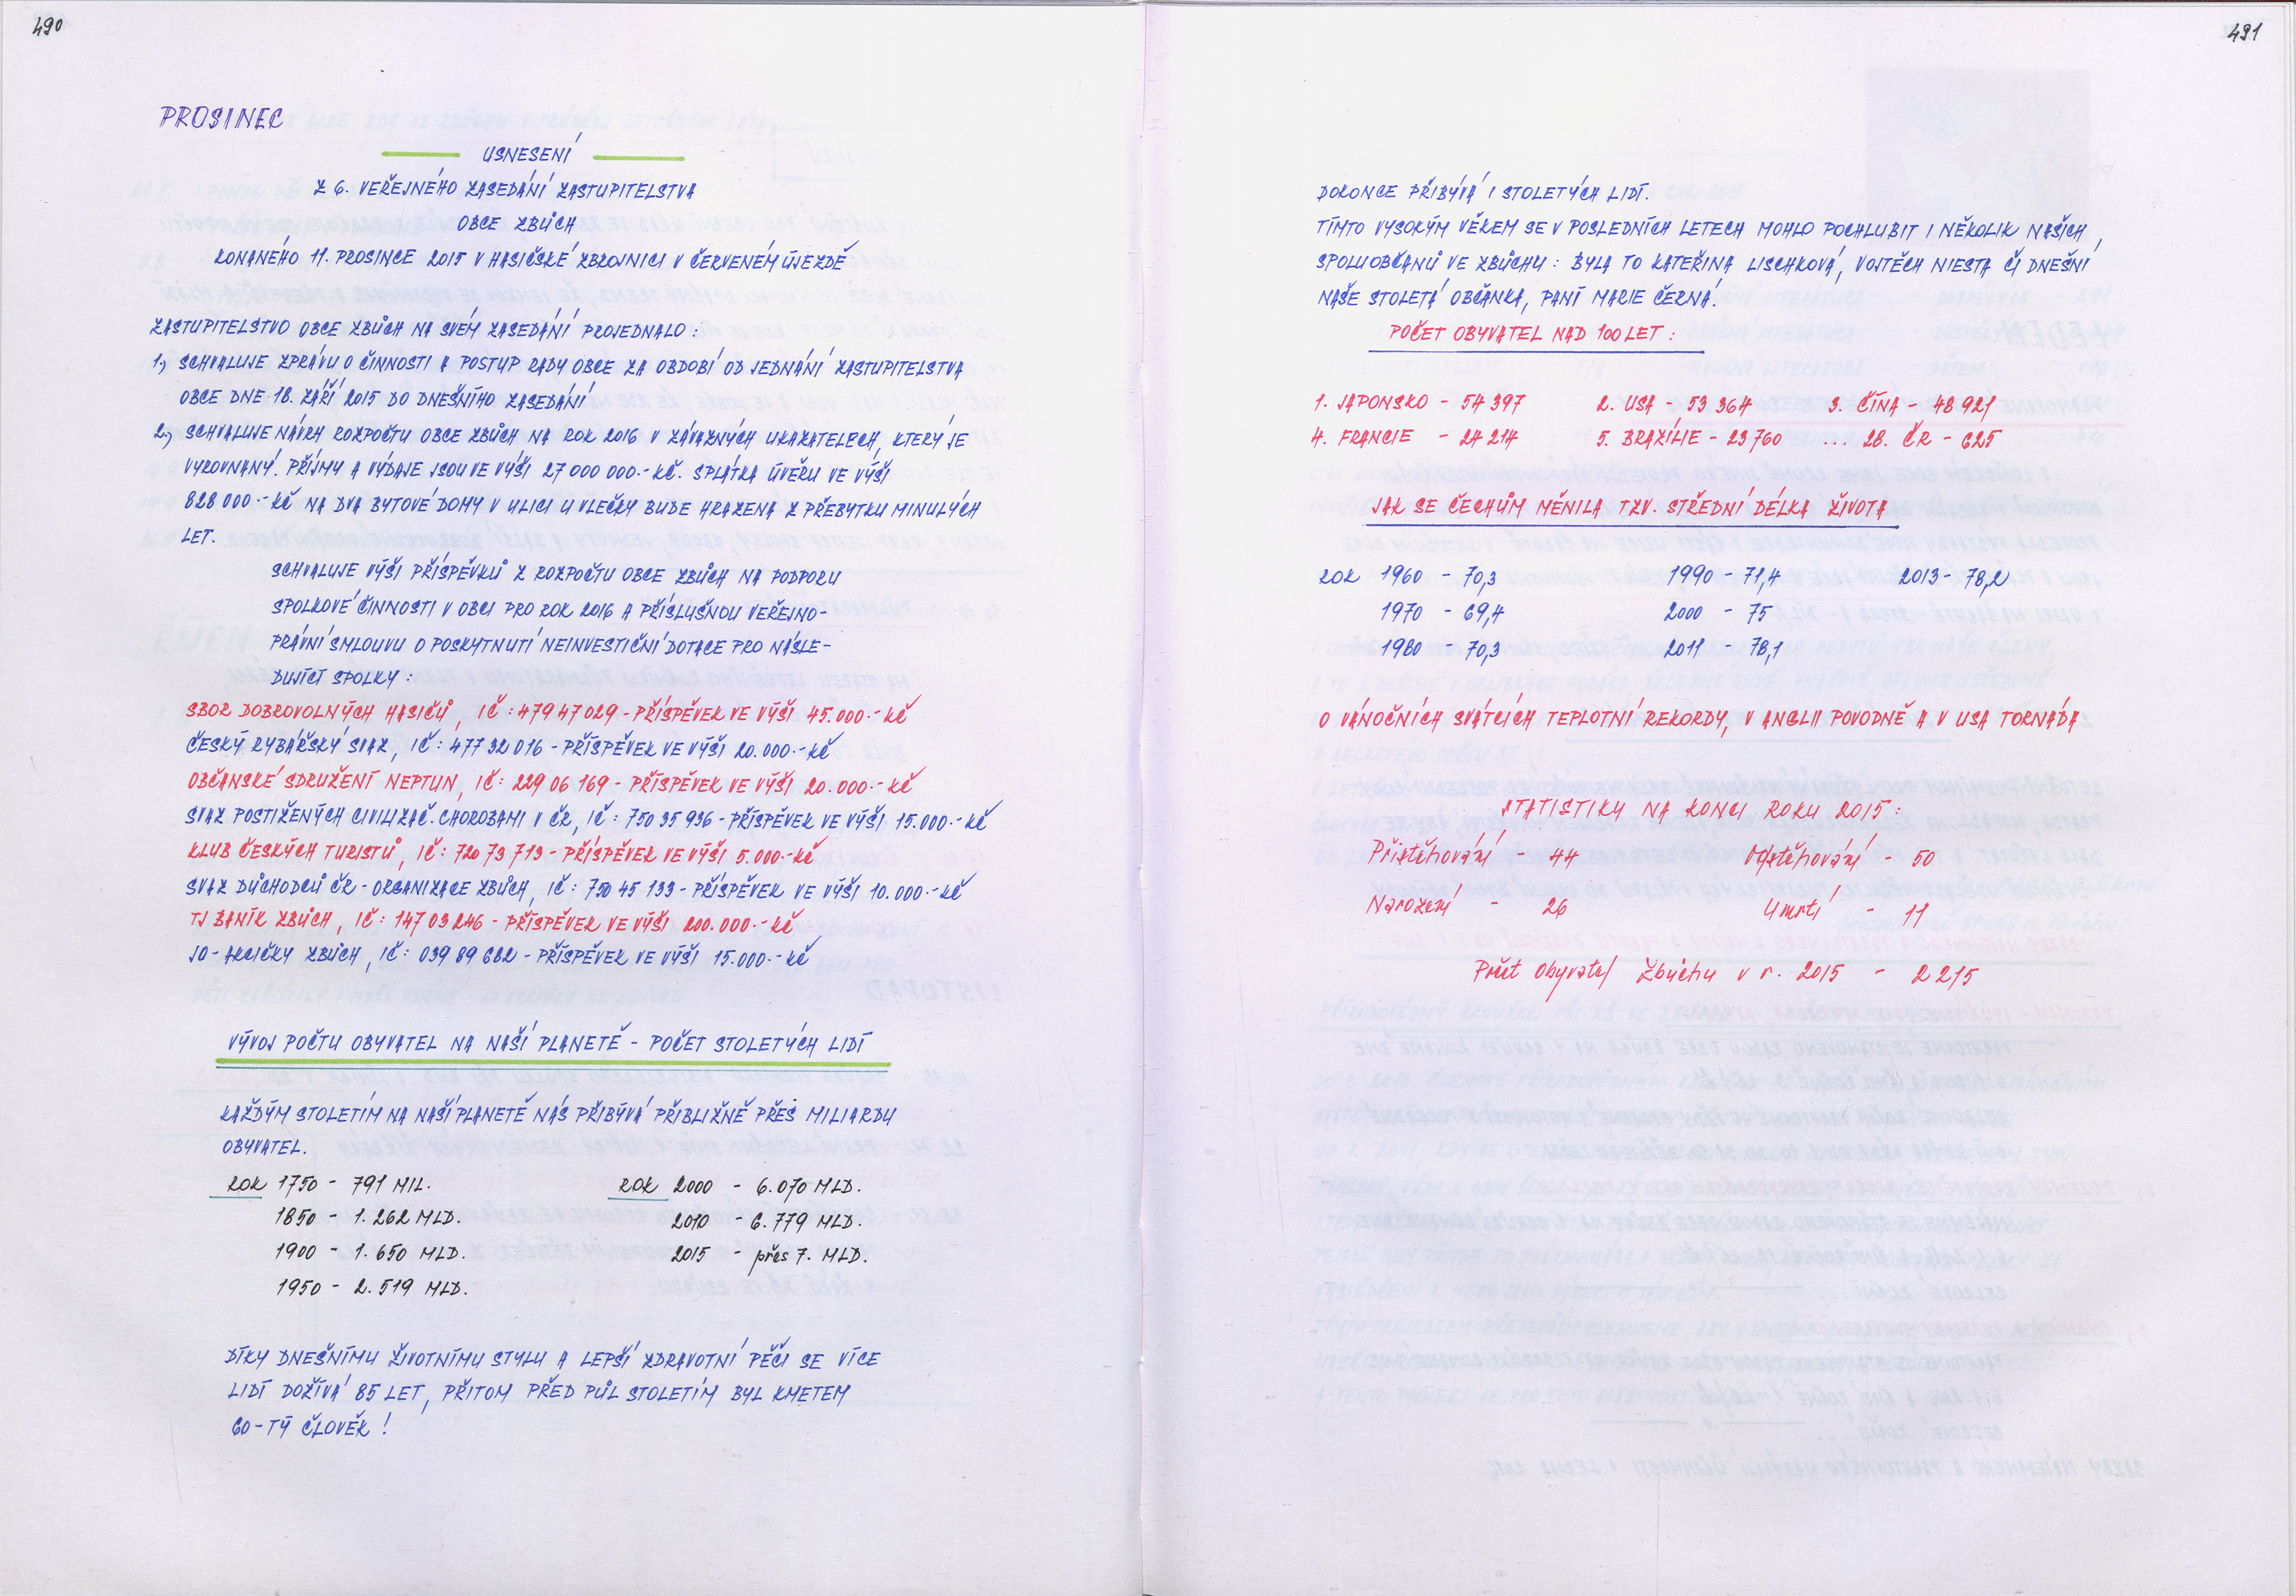 490
PROSINEC
USNESENÍ
Z 6. VEŘEJNÉHO ZASEDÁNÍ ZASTUPITELSTVA
OBCE ZBŮCH
KONANÉHO 11. PROSINCE 2015 V HASIČSKÉ ZBROJNICI V ČERVENÉM ÚJEZDĚ
ZASTUPITELSTVO OBCE ZBŮCH NA SVÉM ZASEDÁNÍ PROJEDNALO:
1., SCHVALUJE ZPRÁVU O ČINNOSTI A POSTUP RADY OBCE ZA OBDOBÍ OD JEDNÁNÍ ZASTUPITELSTVA
OBCE DNE 18. ZÁŘÍ 2015 DO DNEŠNÍHO ZASEDÁNÍ
2., SCHVALUJE NÁVRH ROZPOČTU OBCE ZBŮCH NA ROK 2016 V ZÁVAZNÝCH UKAZATELECH, KTERÝ JE
VYROVNANÝ. PŘÍJMY A VÝDAJE JSOU VE VÝŠI 27 000 000.- KČ. SPLÁTKA ÚVĚRU VE VÝŠI
828 000.- KČ NA DVA BYTOVÉ DOMY V ULICI U VLEČKY BUDE HRAZENA Z PŘEBYTKU MINULÝCH
LET.
SCHVALUJE VÝŠI PŘÍSPĚVKŮ Z ROZPOČTU OBCE ZBŮCH NA PODPORU
SPOLKOVÉ ČINNOSTI V OBCI PRO ROK 2016 A PŘÍSLUŠNOU VEŘEJNO-
PRÁVNÍ SMLOUVU O POSKYTNUTÍ NEINVESTIČNÍ DOTACE PRO NÁSLE-
DUJÍCÍ SPOLKY:
SBOR DOBROVOLNÝCH HASIČŮ, IČ: 479 47 029 - PŘÍSPĚVEK VE VÝŠI 45.000.- KČ
ČESKÝ RYBÁŘSKÝ SVAZ, IČ: 477 32 016 - PŘÍSPĚVEK VE VÝŠI 20.000.- KČ
OBČANSKÉ SDRUŽENÍ NEPTUN, IČ: 229 06 169 - PŘÍSPĚVEK VE VÝŠI 20.000.- KČ
SVAZ POSTIŽENÝCH CIVILIZAČ. CHOROBAMI V ČR, IČ: 750 35 936 - PŘÍSPĚVEK VE VÝŠI 15.000.- KČ
KLUB ČESKÝCH TURISTŮ, IČ: 720 73 713 - PŘÍSPĚVEK VE VÝŠI 5.000.- KČ
SVAZ DŮCHODCŮ ČR - ORGANIZACE ZBŮCH, IČ: 750 45 133 - PŘÍSPĚVEK VE VÝŠI 10.000.- KČ
TJ BANÍK ZBŮCH, IČ: 147 03 246 - PŘÍSPĚVEK VE VÝŠI 200.000.- KČ
JO-AKCIČKY ZBŮCH, IČ: 039 89 682 - PŘÍSPĚVEK VE VÝŠI 15.000.- KČ
VÝVOJ POČTU OBYVATEL NA NAŠÍ PLANETĚ - POČET STOLETÝCH LIDÍ
KAŽDÝM STOLETÍM NA NAŠÍ PLANETĚ NÁS PŘIBÝVÁ PŘIBLIŽNĚ PŘES MILIARDU
OBYVATEL.
ROK 1750 - 791 MIL. ROK 2000 - 6.070 MLD.
1850 - 1.262 MLD. 2010 - 6.779 MLD.
1900 - 1.650 MLD. 2015 - přes 7. MLD.
1950 - 2.519 MLD.
DÍKY DNEŠNÍMU ŽIVOTNÍMU STYLU A LEPŠÍ ZDRAVOTNÍ PÉČI SE VÍCE
LIDÍ DOŽÍVÁ 85 LET, PŘITOM PŘED PŮL STOLETÍM BYL KMETEM
60-TÝ ČLOVĚK!
491
DOKONCE PŘIBÝVÁ I STOLETÝCH LIDÍ.
TÍMTO VYSOKÝM VĚKEM SE V POSLEDNÍCH LETECH MOHLO POCHLUBIT I NĚKOLIK NAŠICH
SPOLUOBČANŮ VE ZBŮCHU: BYLA TO KATEŘINA LISCHKOVÁ, VOJTĚCH NIESTA ČI DNEŠNÍ
NAŠE STOLETÁ OBČANKA, PANÍ MARIE ČERNÁ.
POČET OBYVATEL NAD 100 LET:
1. JAPONSKO - 54 397 2. USA - 53 364 3. ČÍNA - 48 921
4. FRANCIE - 24 214 5. BRAZÍLIE - 23 760 ... 28. ČR - 625
JAK SE ČECHŮM MĚNILA TZV. STŘEDNÍ DÉLKA ŽIVOTA
ROK 1960 - 70,3 1990 - 71,4 2013 - 78,2
1970 - 69,4 2000 - 75
1980 - 70,3 2011 - 78,1
O VÁNOČNÍCH SVÁTCÍCH TEPLOTNÍ REKORDY, V ANGLII POVODNĚ A V USA TORNÁDA
STATISTIKY NA KONCI ROKU 2015:
Přistěhování - 44 Odstěhování - 50
Narození - 26 Úmrtí - 11
Počet obyvatel Zbůchu v r. 2015 - 2 215